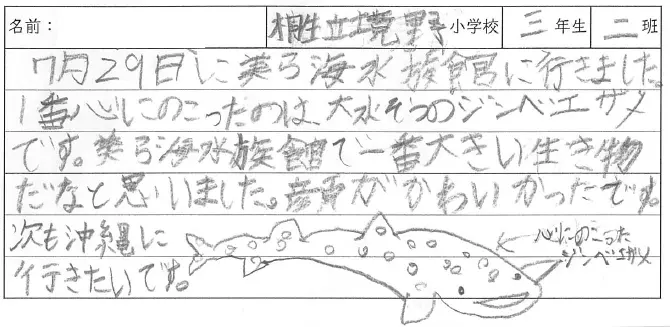 名前： 桐生市立境野小学校 三年生 二班
7月29日に美ら海水族館に行きました。
1番心にのこったのは、大水そうのジンベエザメ
です。美ら海水族館で一番大きい生き物
だなと思いました。がかわいかったです。
次も沖縄に
行きたいです。
心にのこった
ジンベエザメ